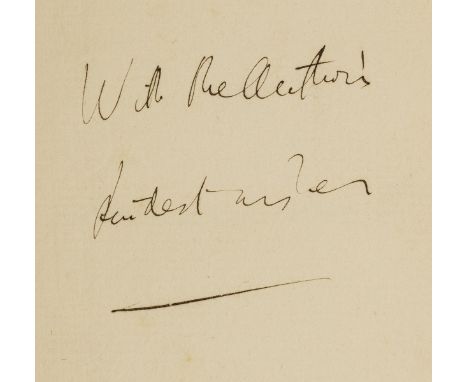 With the Author's
kindest wishes